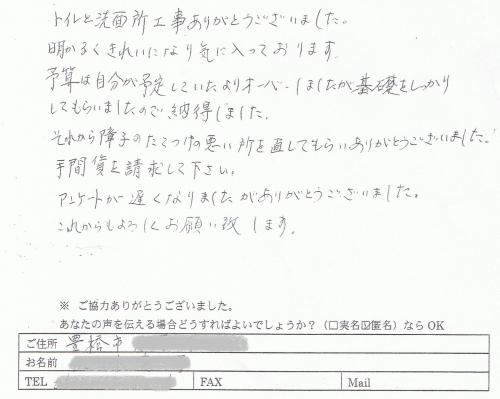 トイレと洗面所工事ありがとうございました。
明かるくきれいになり気に入っております。
予算は自分が予定していたよりオーバーしましたが基礎をしっかり
してもらいましたので納得しました。
それから障子のたてつけの悪い所を直してもらいありがとうございました。
手間賃を請求して下さい。
アンケートが遅くなりましたがありがとうございました。
これからもよろしくお願い致します。
※ ご協力ありがとうございました。
あなたの声を伝える場合どうすればよいでしょうか?（□実名☑匿名）ならOK
ご住所 豊橋市
お名前
TEL FAX Mail